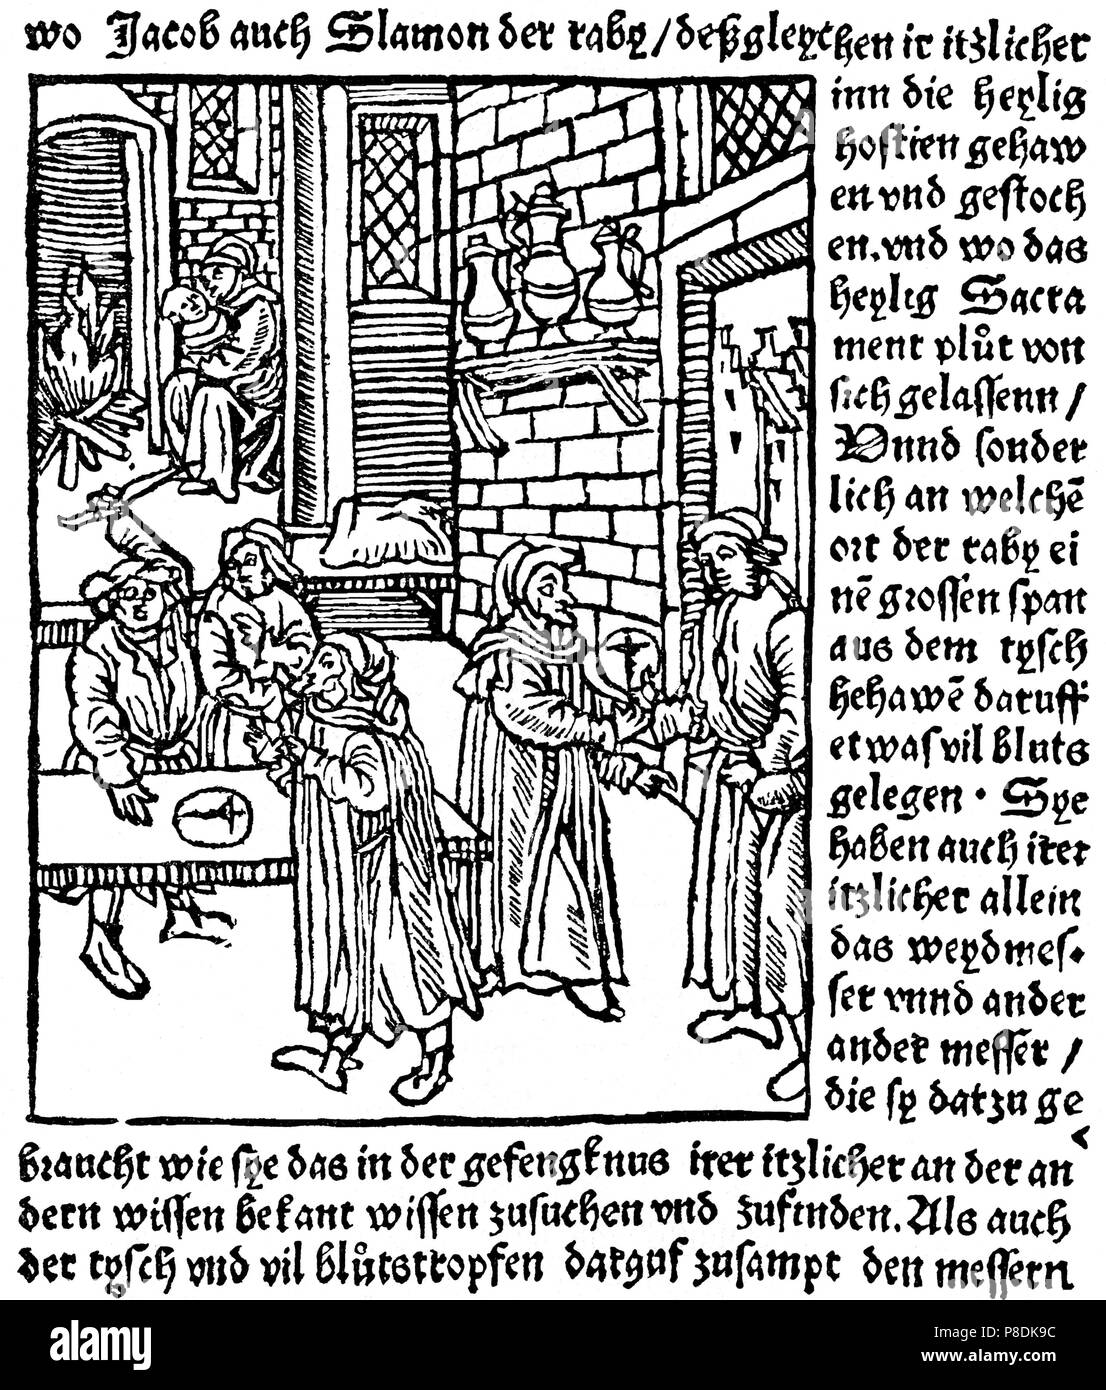 wo Jacob auch Slamon der raby / deßgleychen ir itzlicher
inn die heylig
hostien gehaw
en vnd gestoch
en. vnd wo das
heylig Sacra
ment plůt von
sich gelassenn /
Vnnd sonder
lich an welchē
ort der raby ei
nē grossen span
aus dem tysch
hehawē daruff
etwas vil bluts
gelegen · Sye
haben auch irer
itzlicher allein
das weydmes-
ser vnnd ander
ander messer /
die sy datzu ge
braucht wie sye das in der gefengknus irer itzlicher an der an
dern wissen bekant wissen zusuchen vnd zufinden. Als auch
der tysch vnd vil blůtstropfen darauf zusampt den messern
alamy
Image ID: P8DK9C
www.alamy.com